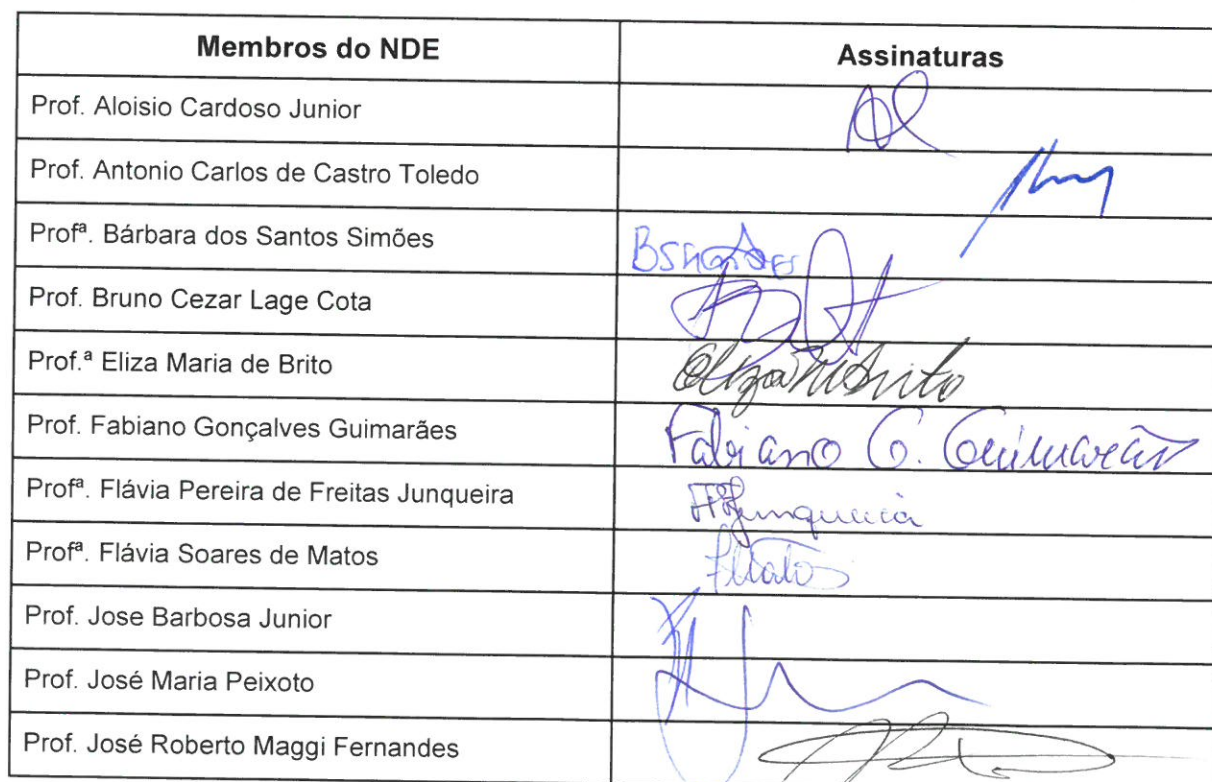 Membros do NDE Assinaturas
Prof. Aloisio Cardoso Junior
Prof. Antonio Carlos de Castro Toledo
Profª. Bárbara dos Santos Simões
Prof. Bruno Cezar Lage Cota
Prof.ª Eliza Maria de Brito
Prof. Fabiano Gonçalves Guimarães Fabiano G. Guimarães
Profª. Flávia Pereira de Freitas Junqueira
Profª. Flávia Soares de Matos
Prof. Jose Barbosa Junior
Prof. José Maria Peixoto
Prof. José Roberto Maggi Fernandes